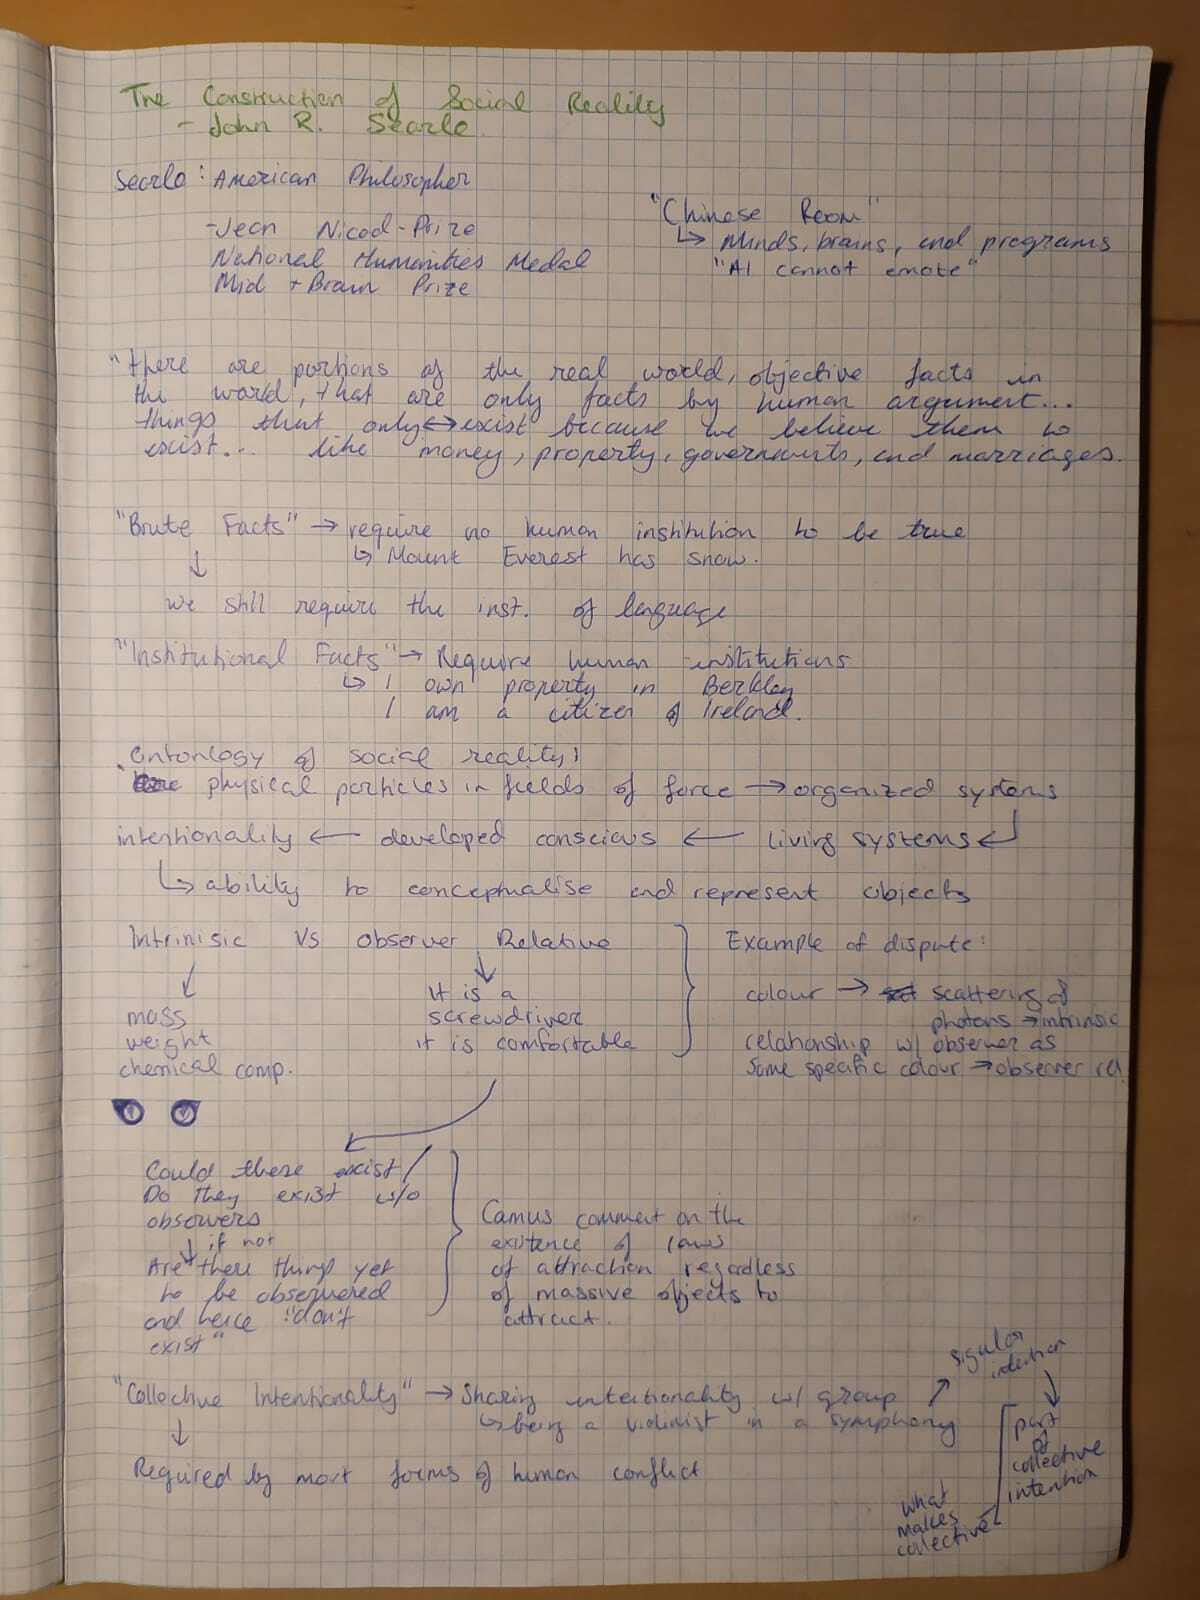 The Construction of Social Reality
- John R. Searle
Searle: American Philosopher
- Jean Nicod-Prize
National Humanities Medal
Mid + Brain Prize
"Chinese Room"
↳ Minds, brains, and programs
"AI cannot emote"
"there are portions of the real world, objective facts in
the world, that are only facts by human argument...
things that only ↔ exist because we believe them to
exist... like money, property, governments, and marriages.
"Brute Facts" → require no human institution to be true
↳ Mount Everest has snow.
↓
we still require the inst. of language
"Institutional Facts" → Require human institutions
↳ I own property in Berkley
I am a citizen of Ireland.
Ontology of social reality:
physical particles in fields of force → organized systems
intentionality ← developed conscious ← living systems ↲
↳ ability to conceptualise and represent objects
Intrinisic Vs observer Relative
mass
weight
chemical comp.
It is a
screwdriver
it is comfortable
Example of dispute:
colour → scattering of
photons → intrinsic
relationship w/ observer as
some specific colour → observer rel.
Could there exist/
Do they exist w/o
observers
↓ if not
Are there things yet
to be observered
and hence "don't
exist"
Camus comment on the
existence of laws
of attraction regardless
of massive objects to
attract.
"Collective Intentionality" → Sharing intentionality w/ group
↳ being a violinist in a symphony
↓
Required by most forms of human conflict
↗ sigular
intention
↓
part
of
collective
intention
what
makes
collective